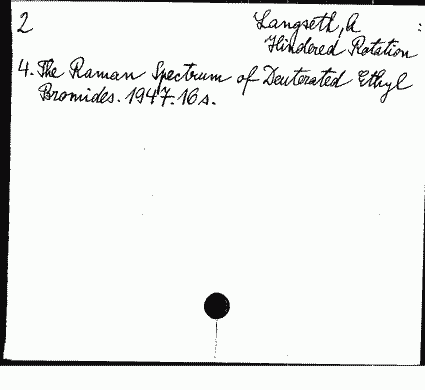 2
Langseth, A :
Hindered Rotation
4. The Raman Spectrum of Deuterated Ethyl
Bromides. 1947. 16 s.